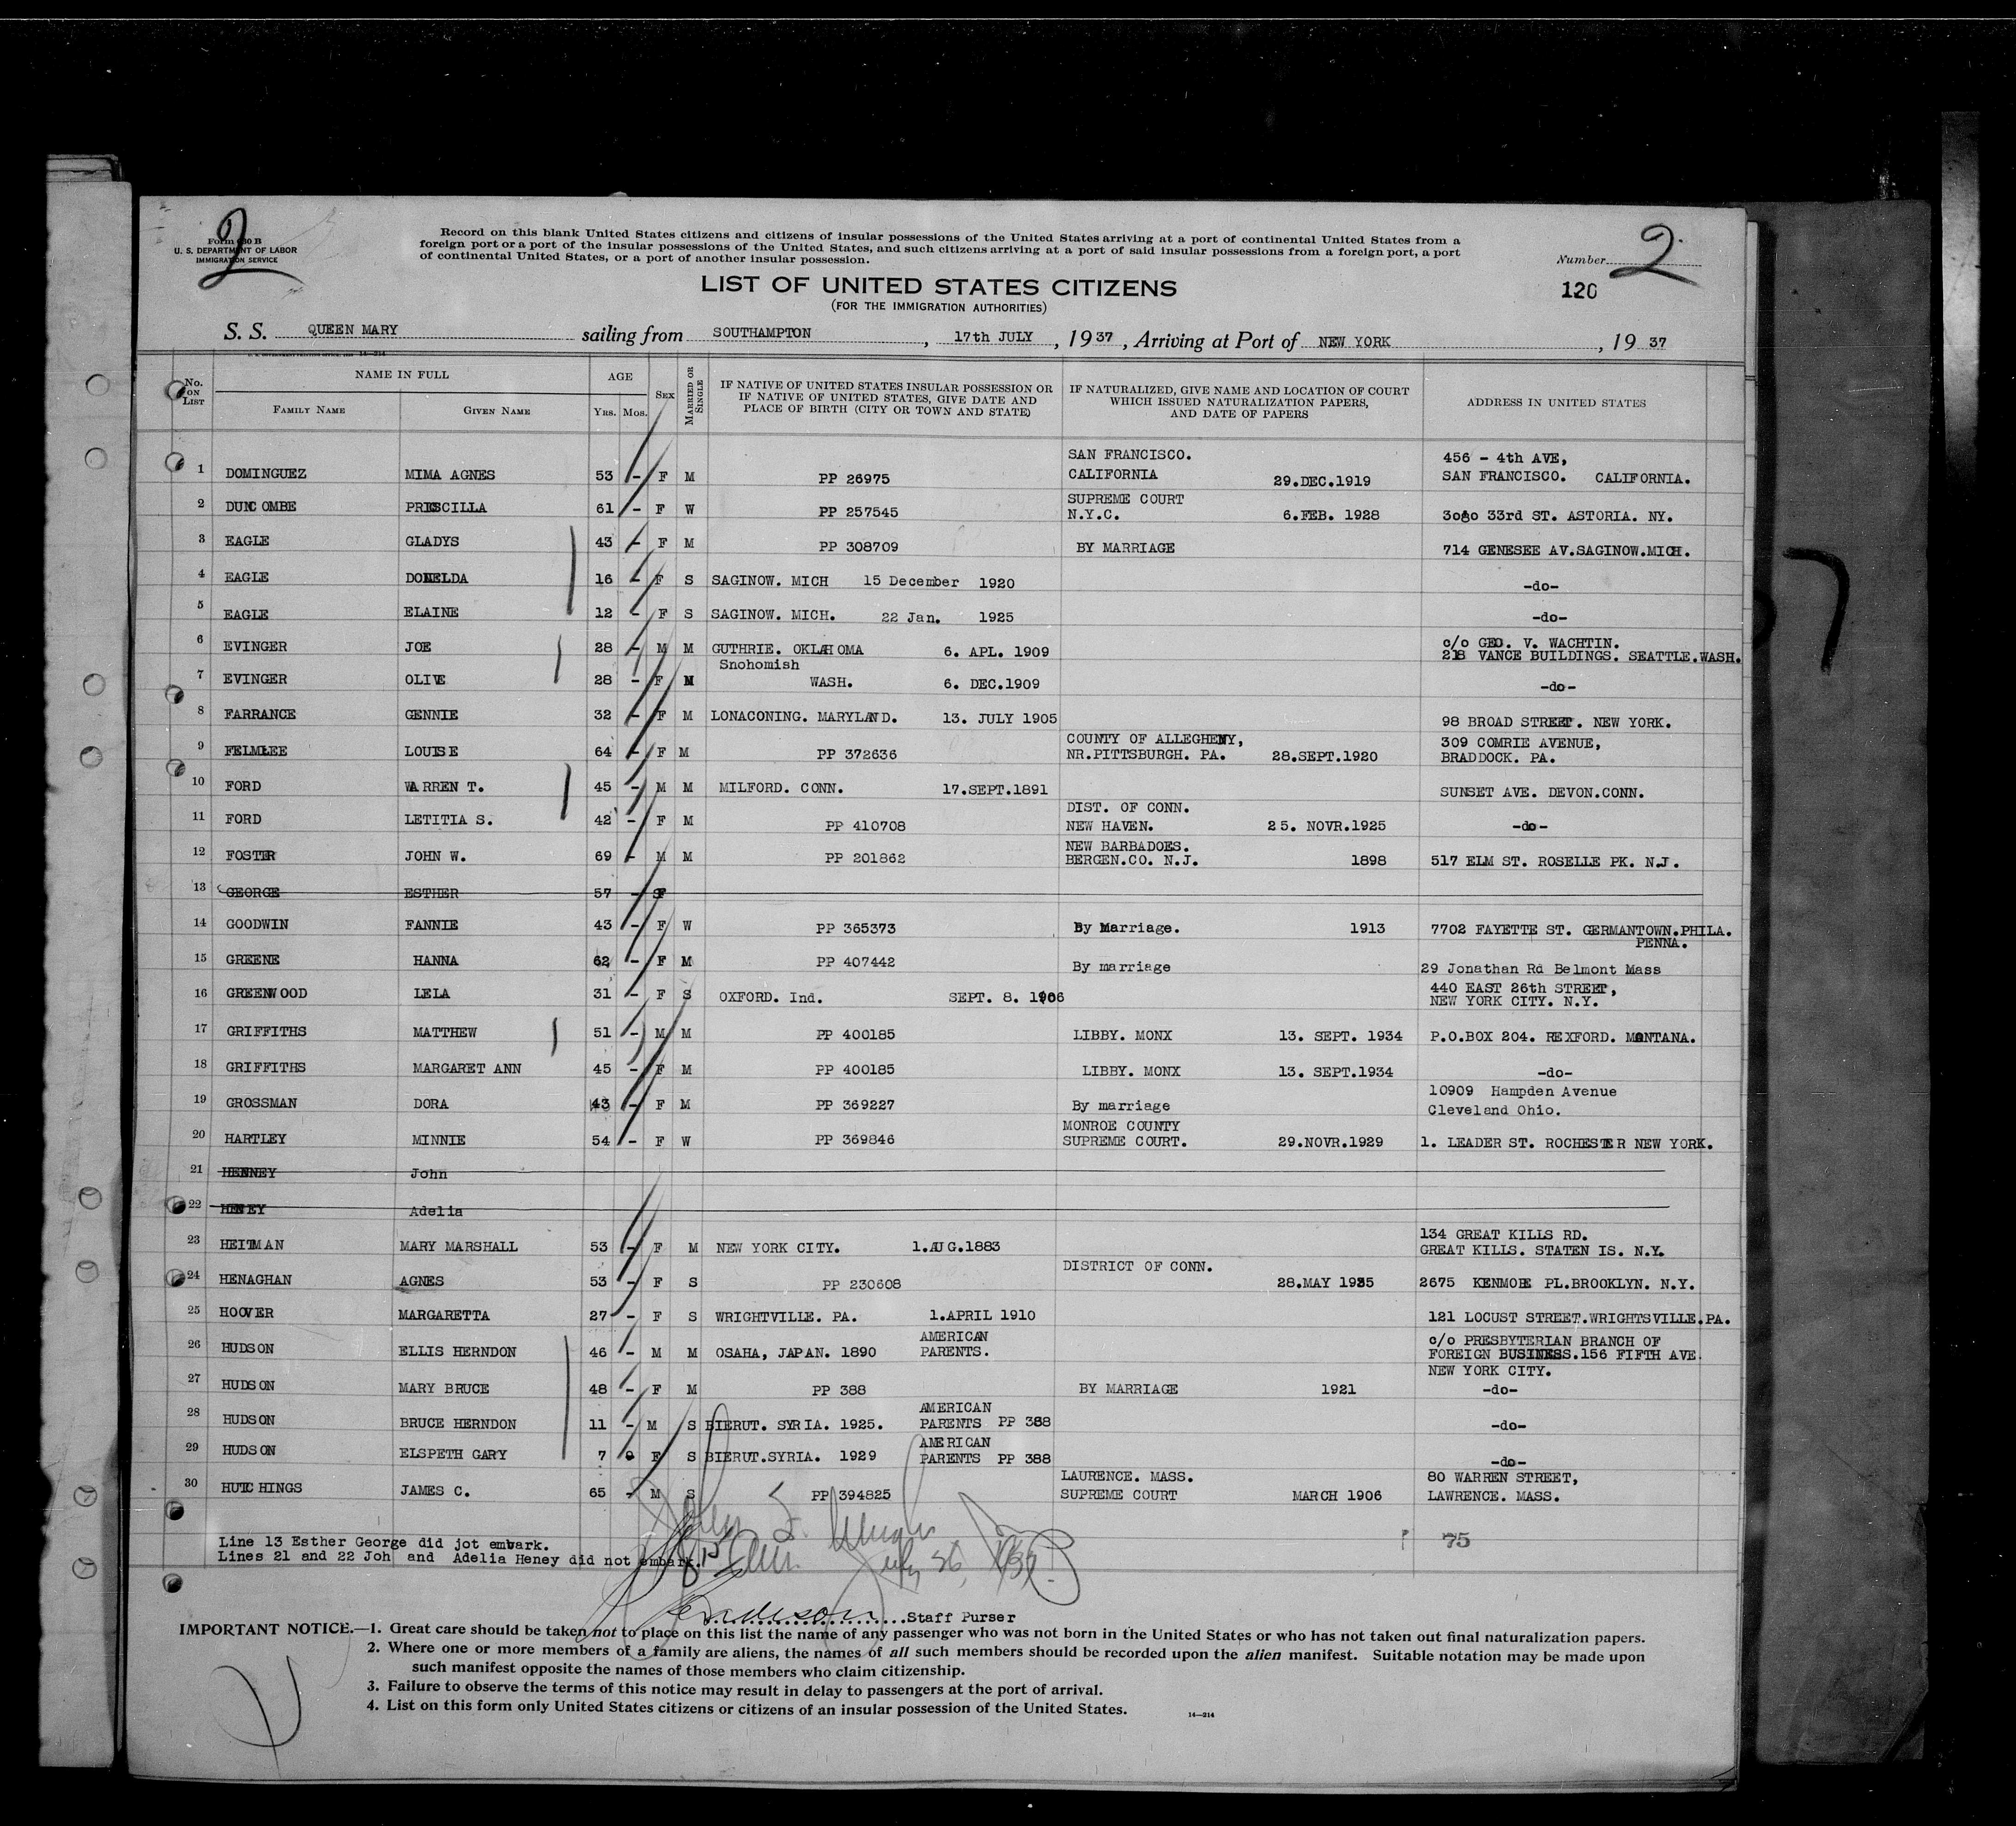 2
Form 630 B
U. S. DEPARTMENT OF LABOR
IMMIGRATION SERVICE
Record on this blank United States citizens and citizens of insular possessions of the United States arriving at a port of continental United States from a
foreign port or a port of the insular possessions of the United States, and such citizens arriving at a port of said insular possessions from a foreign port, a port
of continental United States, or a port of another insular possession.
Number 2
120
LIST OF UNITED STATES CITIZENS
(FOR THE IMMIGRATION AUTHORITIES)
S. S. QUEEN MARY sailing from SOUTHAMPTON, 17th JULY, 1937, Arriving at Port of NEW YORK, 1937
No. ON LIST NAME IN FULL FAMILY NAME GIVEN NAME AGE YRS. MOS. SEX MARRIED OR SINGLE IF NATIVE OF UNITED STATES INSULAR POSSESSION OR IF NATIVE OF UNITED STATES, GIVE DATE AND PLACE OF BIRTH (CITY OR TOWN AND STATE) IF NATURALIZED, GIVE NAME AND LOCATION OF COURT WHICH ISSUED NATURALIZATION PAPERS, AND DATE OF PAPERS ADDRESS IN UNITED STATES
1 DOMINGUEZ MIMA AGNES 53 - F M PP 26975 SAN FRANCISCO. CALIFORNIA 29.DEC.1919 456 - 4th AVE, SAN FRANCISCO. CALIFORNIA.
2 DUNCOMBE PRISCILLA 61 - F W PP 257545 SUPREME COURT N.Y.C. 6.FEB. 1928 3080 33rd ST. ASTORIA. NY.
3 EAGLE GLADYS 43 - F M PP 308709 BY MARRIAGE 714 GENESEE AV.SAGINOW.MICH.
4 EAGLE DONELDA 16 - F S SAGINOW. MICH 15 December 1920 -do-
5 EAGLE ELAINE 12 - F S SAGINOW. MICH. 22 Jan. 1925 -do-
6 EVINGER JOE 28 - M M GUTHRIE. OKLAHOMA 6. APL. 1909 c/o GEO. V. WACHTIN. 218 VANCE BUILDINGS. SEATTLE.WASH.
7 EVINGER OLIVE 28 - F M Snohomish WASH. 6. DEC.1909 -do-
8 FARRANCE GENNIE 32 - F M LONACONING. MARYLAND. 13. JULY 1905 98 BROAD STREET. NEW YORK.
9 FELMLEE LOUISE 64 - F M PP 372636 COUNTY OF ALLEGHENY, NR.PITTSBURGH. PA. 28.SEPT.1920 309 COMRIE AVENUE, BRADDOCK. PA.
10 FORD WARREN T. 45 - M M MILFORD. CONN. 17.SEPT.1891 SUNSET AVE. DEVON.CONN.
11 FORD LETITIA S. 42 - F M PP 410708 DIST. OF CONN. NEW HAVEN. 25. NOVR.1925 -do-
12 FOSTER JOHN W. 69 - M M PP 201862 NEW BARBADOES. BERGEN.CO. N.J. 1898 517 ELM ST. ROSELLE PK. N.J.
13 GEORGE ESTHER 57 - F
14 GOODWIN FANNIE 43 - F W PP 365373 By Marriage. 1913 7702 FAYETTE ST. GERMANTOWN.PHILA. PENNA.
15 GREENE HANNA 62 - F M PP 407442 By marriage 29 Jonathan Rd Belmont Mass
16 GREENWOOD LELA 31 - F S OXFORD. Ind. SEPT. 8. 1906 440 EAST 26th STREET, NEW YORK CITY. N.Y.
17 GRIFFITHS MATTHEW 51 - M M PP 400185 LIBBY. MONX 13. SEPT. 1934 P.O.BOX 204. REXFORD. MONTANA.
18 GRIFFITHS MARGARET ANN 45 - F M PP 400185 LIBBY. MONX 13. SEPT.1934 -do-
19 GROSSMAN DORA 43 - F M PP 369227 By marriage 10909 Hampden Avenue Cleveland Ohio.
20 HARTLEY MINNIE 54 - F W PP 369846 MONROE COUNTY SUPREME COURT. 29.NOVR.1929 1. LEADER ST. ROCHESTER NEW YORK.
21 HENNEY John
22 HENEY Adelia
23 HEITMAN MARY MARSHALL 53 - F M NEW YORK CITY. 1.AUG.1883 134 GREAT KILLS RD. GREAT KILLS. STATEN IS. N.Y.
24 HENAGHAN AGNES 53 - F S PP 230608 DISTRICT OF CONN. 28.MAY 1935 2675 KENMORE PL.BROOKLYN. N.Y.
25 HOOVER MARGARETTA 27 - F S WRIGHTVILLE. PA. 1.APRIL 1910 121 LOCUST STREET.WRIGHTSVILLE.PA.
26 HUDSON ELLIS HERNDON 46 - M M OSAHA, JAPAN. 1890 AMERICAN PARENTS. c/o PRESBYTERIAN BRANCH OF FOREIGN BUSINESS.156 FIFTH AVE. NEW YORK CITY.
27 HUDSON MARY BRUCE 48 - F M PP 388 BY MARRIAGE 1921 -do-
28 HUDSON BRUCE HERNDON 11 - M S BIERUT. SYRIA. 1925. AMERICAN PARENTS PP 388 -do-
29 HUDSON ELSPETH GARY 7 9 F S BIERUT.SYRIA. 1929 AMERICAN PARENTS PP 388 -do-
30 HUTCHINGS JAMES C. 65 - M S PP 394825 LAURENCE. MASS. SUPREME COURT MARCH 1906 80 WARREN STREET, LAWRENCE. MASS.
75
Line 13 Esther George did jot embark.
Lines 21 and 22 Joh and Adelia Heney did not embark.
Staff Purser
IMPORTANT NOTICE.—1. Great care should be taken not to place on this list the name of any passenger who was not born in the United States or who has not taken out final naturalization papers.
2. Where one or more members of a family are aliens, the names of all such members should be recorded upon the alien manifest. Suitable notation may be made upon
such manifest opposite the names of those members who claim citizenship.
3. Failure to observe the terms of this notice may result in delay to passengers at the port of arrival.
4. List on this form only United States citizens or citizens of an insular possession of the United States.
14—214